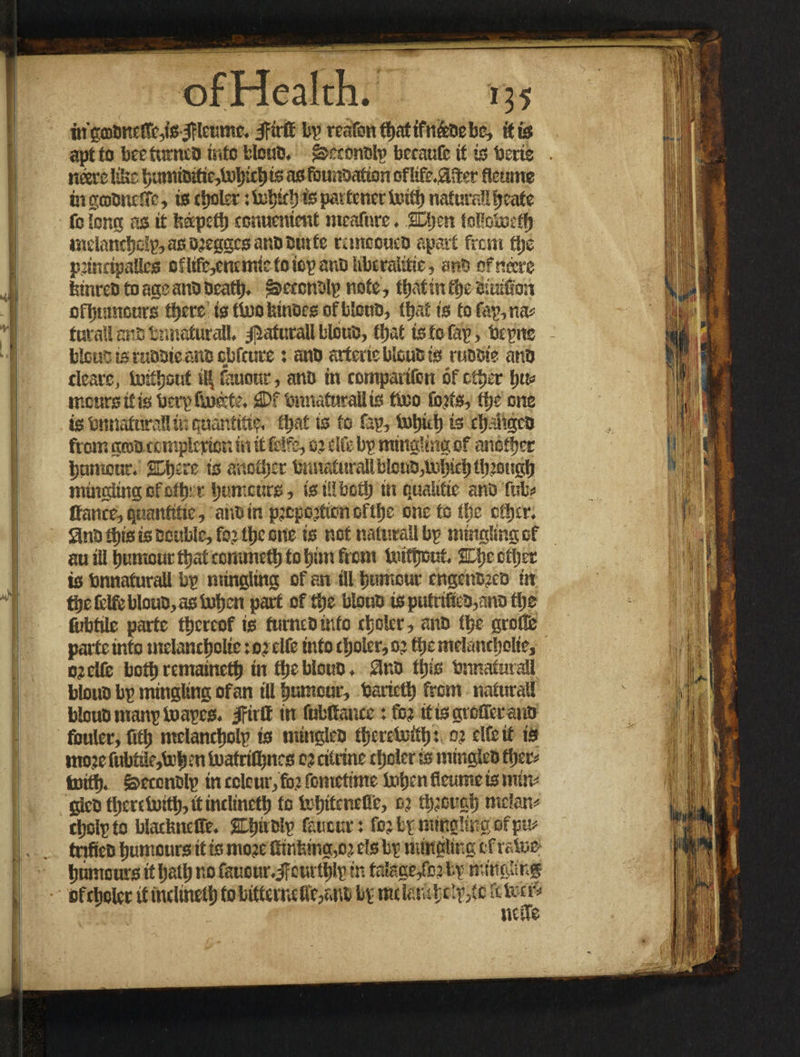 of Health. 135
in goodnesse, is Fleume. First by reason that if néede be, it is
apt to bee turned into bloud. Secondly because it is verie
néere like humiditie, which is as foundation of life. After fleume
in goodnesse, is choler: which is partener with naturall heate
so long as it képeth conuenient measure. Then followeth
melancholy, as dregges and durte remooued apart from the
principalles of life, enemie to ioy and liberalitie, and of néere
kinred to age and death. Secondly note, that in the diuision
of humours there is two kindes of bloud, that is to say, na-
turall and vnnaturall. Naturall bloud, that is to say, veyne
bloud is ruddie and obscure: and arterie bloud is ruddie and
cleare, without ill sauour, and in comparison of other hu-
mours it is very swéete. Of vnnaturall is two sorts, the one
is vnnaturall in quantitie, that is to say, which is changed
from good complexion in it selfe, or else by mingling of another
humour. There is another vnnaturall bloud, which through
mingling of other humours, is ill both in qualitie and sub-
stance, quantitie, and in proportion of the one to the other.
And this is double, for the one is not naturall by mingling of
an ill humour that commeth to him from without. The other
is vnnaturall by mingling of an ill humour engendred in
the selfe bloud, as when part of the bloud is putrified, and the
subtile parte thereof is turned into choler, and the grosse
parte into melancholie: or else into choler, or the melancholie,
or else both remaineth in the bloud. And this vnnaturall
bloud by mingling of an ill humour, varieth from naturall
bloud many wayes. First in substance: for it is grosser and
fouler, sith melancholy is mingled therewith: or else it is
more subtile, when watrishnes or citrine choler is mingled ther-
with. Secondly in colour, for sometime when fleume is min-
gled therewith, it inclineth to whitenesse, or through melan-
choly to blacknesse. Thirdly sauour: for by mingling of pu-
trified humours it is more stinking, or els by mingling of rawe
humours it hath no sauour. Fourthly in talage, for by mingling
of choler it inclineth to bitternesse, and by melancholy, to
nesse